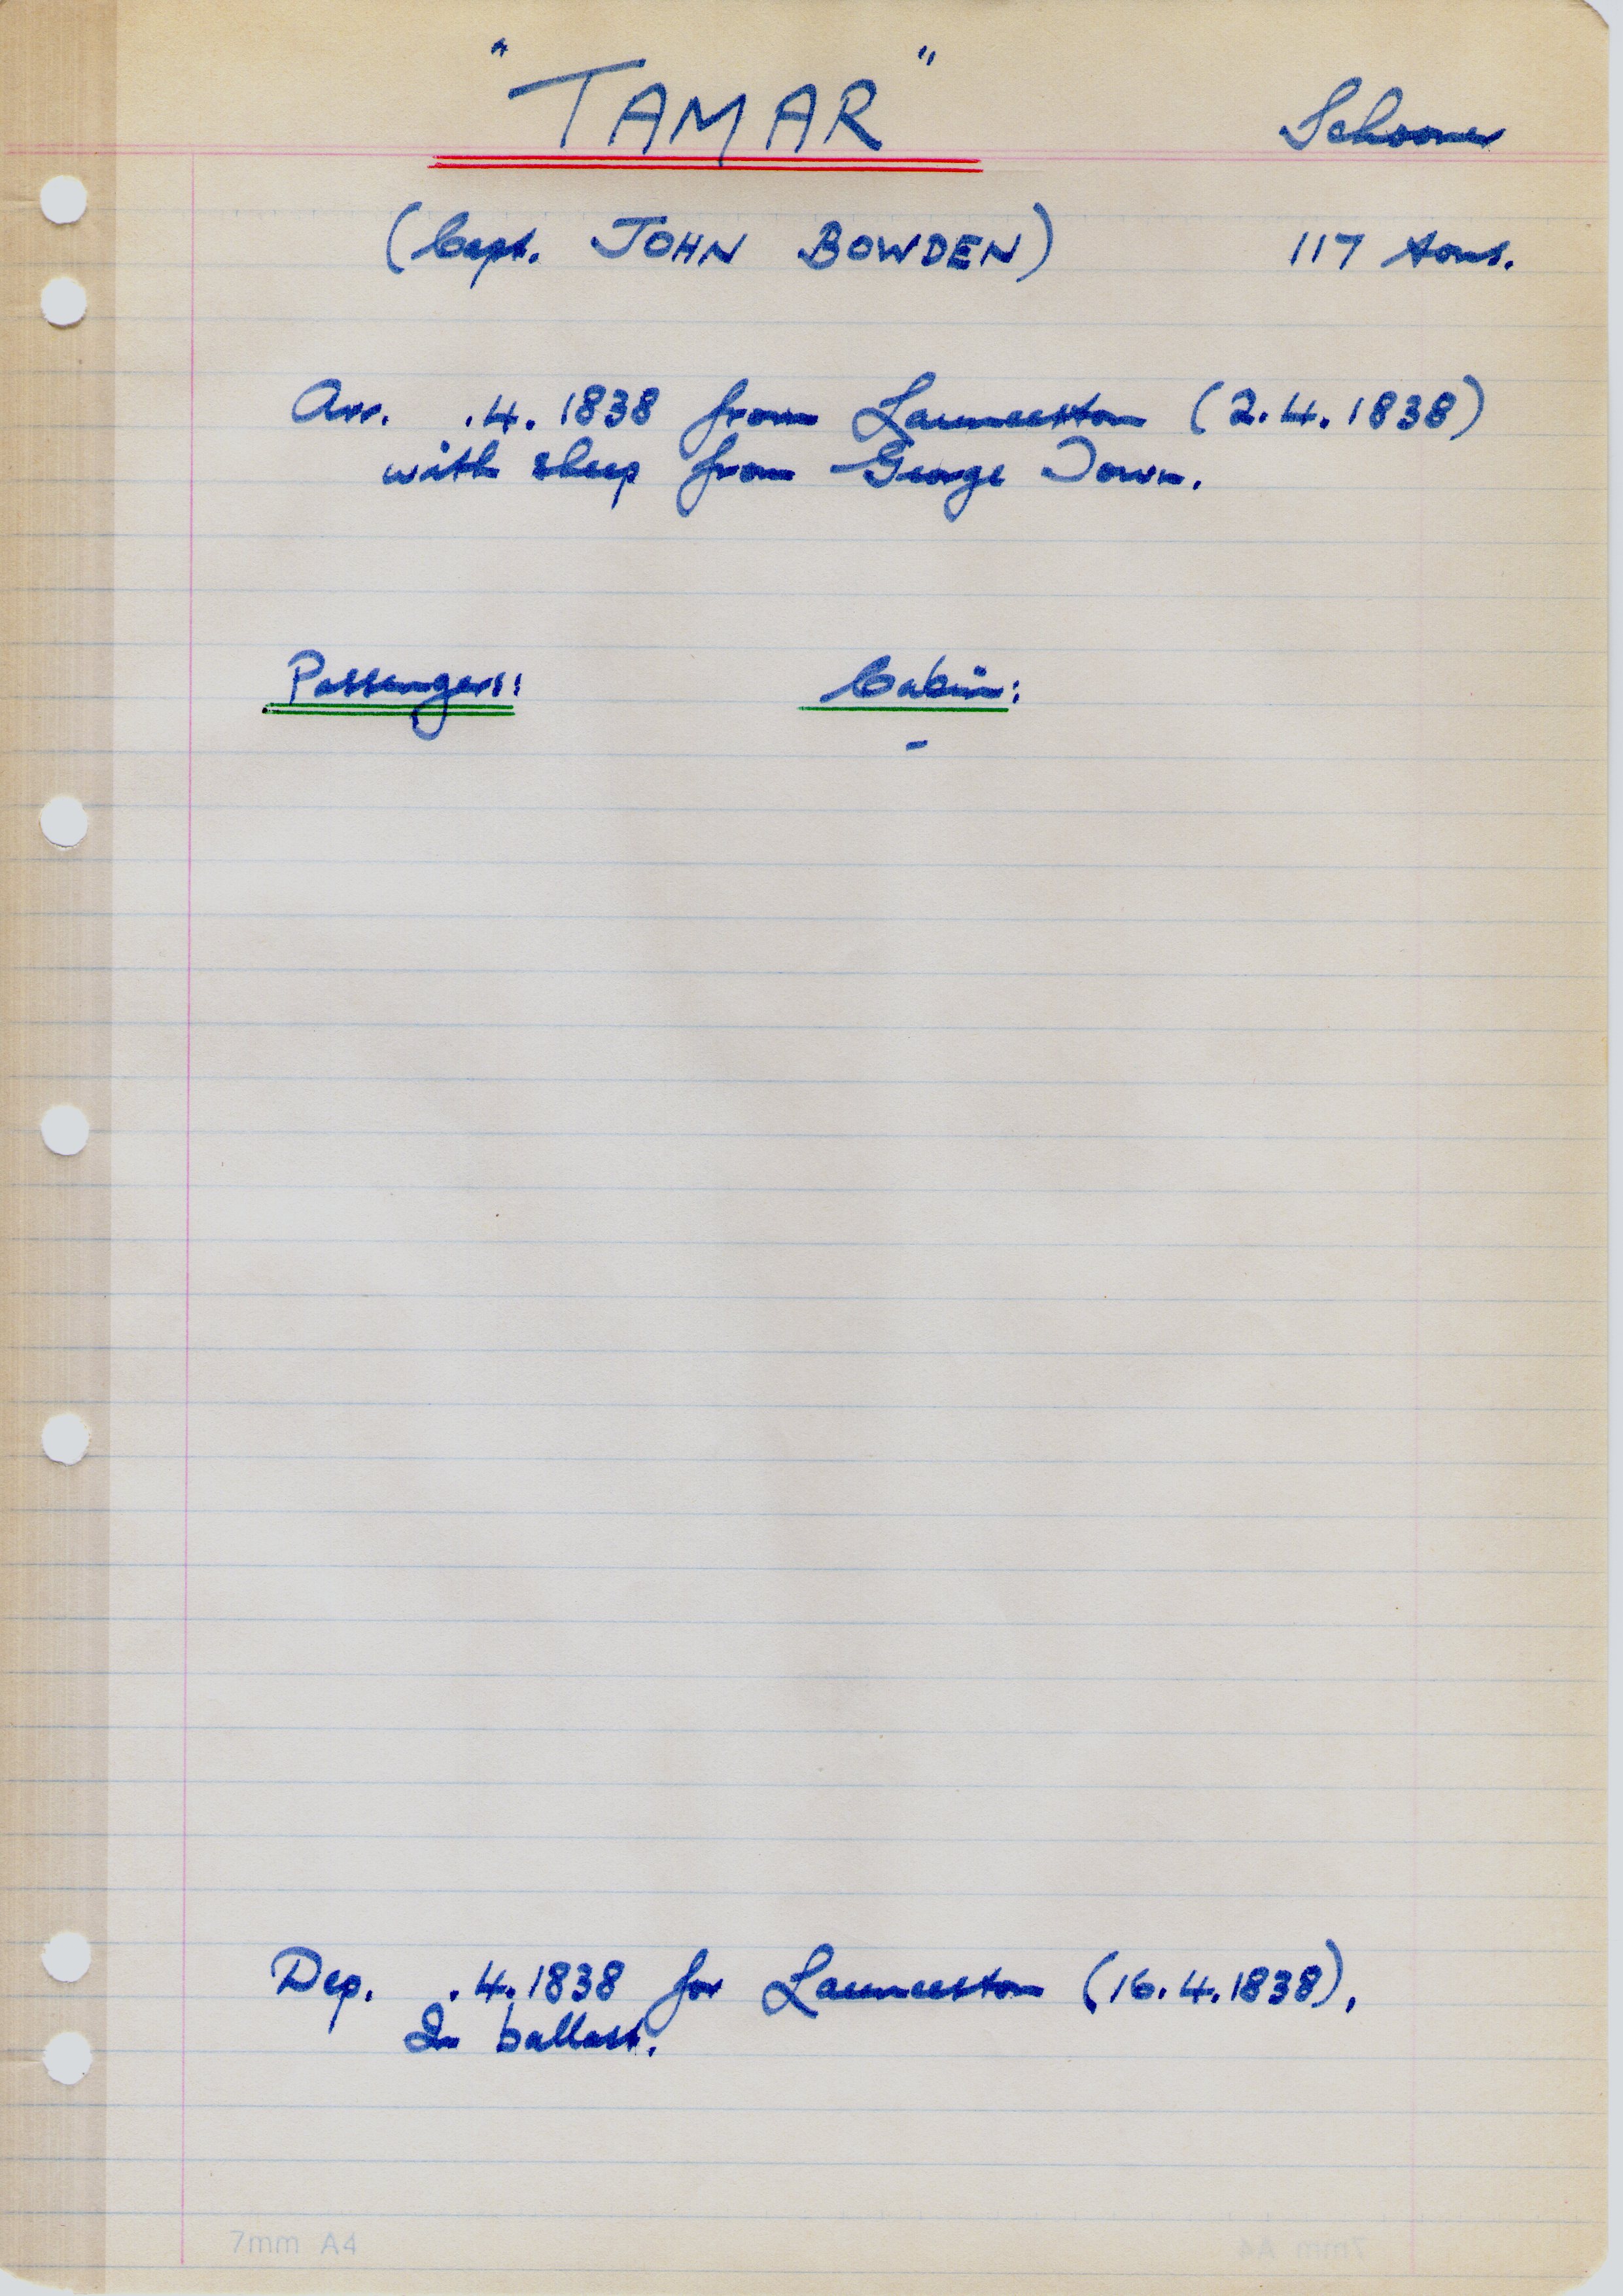 "TAMAR" Schooner
(Capt. JOHN BOWDEN) 117 tons.
Arr. .4.1838 from Launceston (2.4.1838)
with sheep from George Town.
Passengers: Cabin:
-
Dep. .4.1838 for Launceston (16.4.1838),
In ballast.
7mm A4